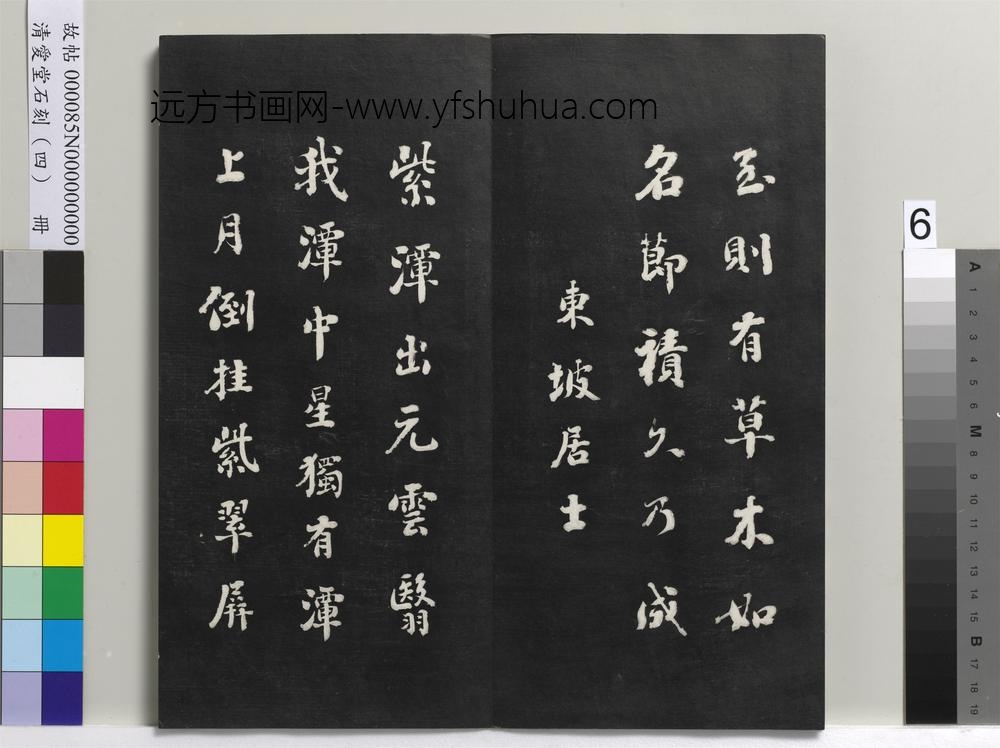 玉則有草木如
名節積久乃成
東坡居士
紫潭出元雲翳
我潭中星獨有潭
上月倒挂紫翠屏
远方书画网-www.yfshuhua.com
故帖 000085N000000000
清愛堂石刻（四） 冊
6
A
1
2
3
4
5
6
M
8
9
10
11
12
13
14
15
B
17
18
19